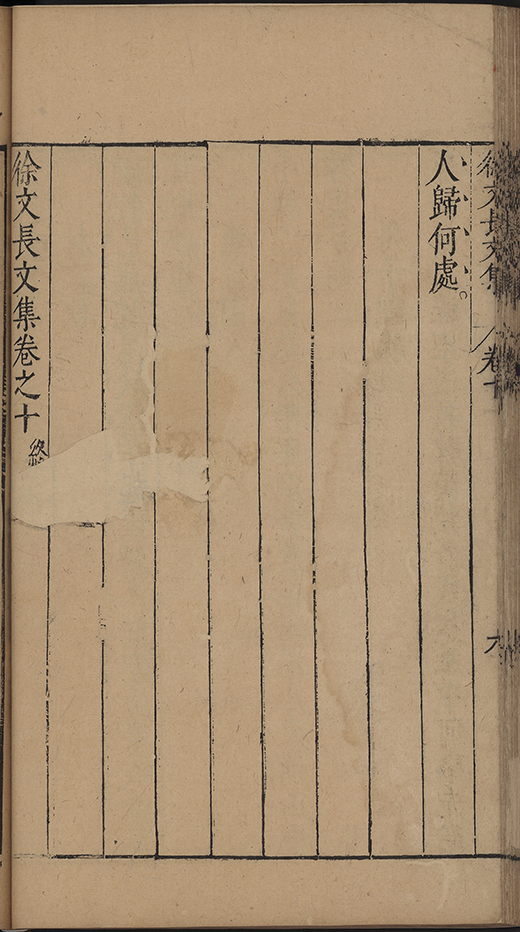 徐文長文集 卷十 九
人歸何處。
徐文長文集卷之十 終